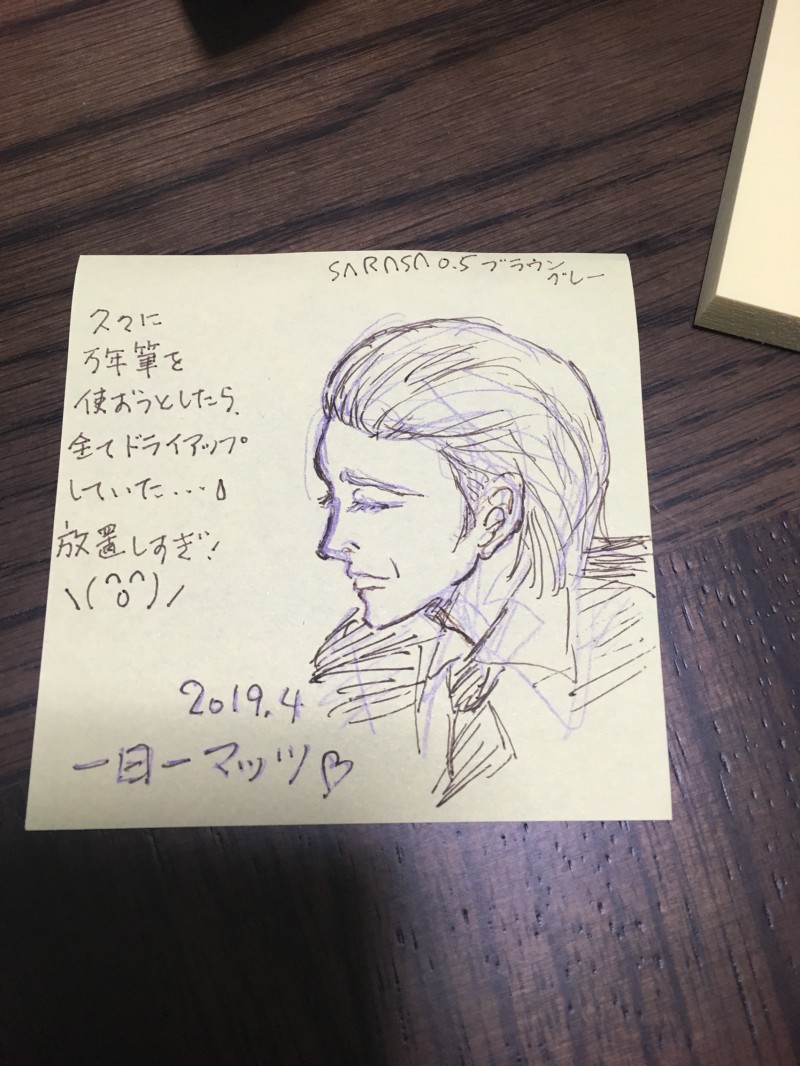 SARASA 0.5 ブラウン
グレー
久々に
万年筆を
使おうとしたら、
全てドライアップ
していた...
放置しすぎ!
\(^o^)/
2019.4
一日一マッツ♡